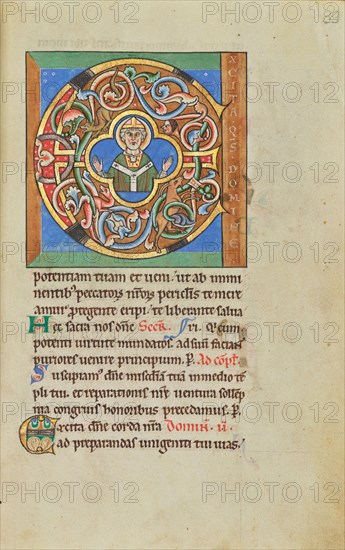 XCITA. QS. DOMINE
potentiam tuam et veni. ut ab immi
nentib; peccatorᷣ nr̄orᷣ periculis te mere
amur ꝓtegente eripi. te liberante salva
Hec sacra nos dn̄e Secr̄. ri.
potenti virtute mundatos. ad suū faciant
puriores venire principium. P. Ad cōpl̄.
Suscipiamᷤ dn̄e mis̄cdiā tuā in medio tē
pli tui. et reparationis nr̄ē ventura sollēp
nia congruis honoribus precedamus. P.
Excita dn̄e corda nr̄a Domin̄. ii.
ad preparandas unigeniti tui vias.
PHOTO12